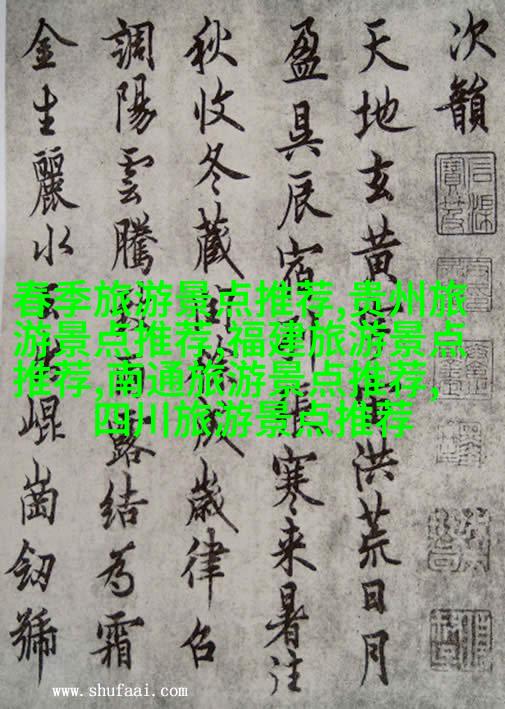 次韻
天地玄黄洪荒日月
盈昃辰宿寒来暑往
秋收冬蔵歲律召
調陽雲騰露結為霜
金生麗水崐崗劒號
春季旅游景点推荐,贵州旅
游景点推荐,福建旅游景点
推荐,南通旅游景点推荐,
四川旅游景点推荐
www.shufaai.com